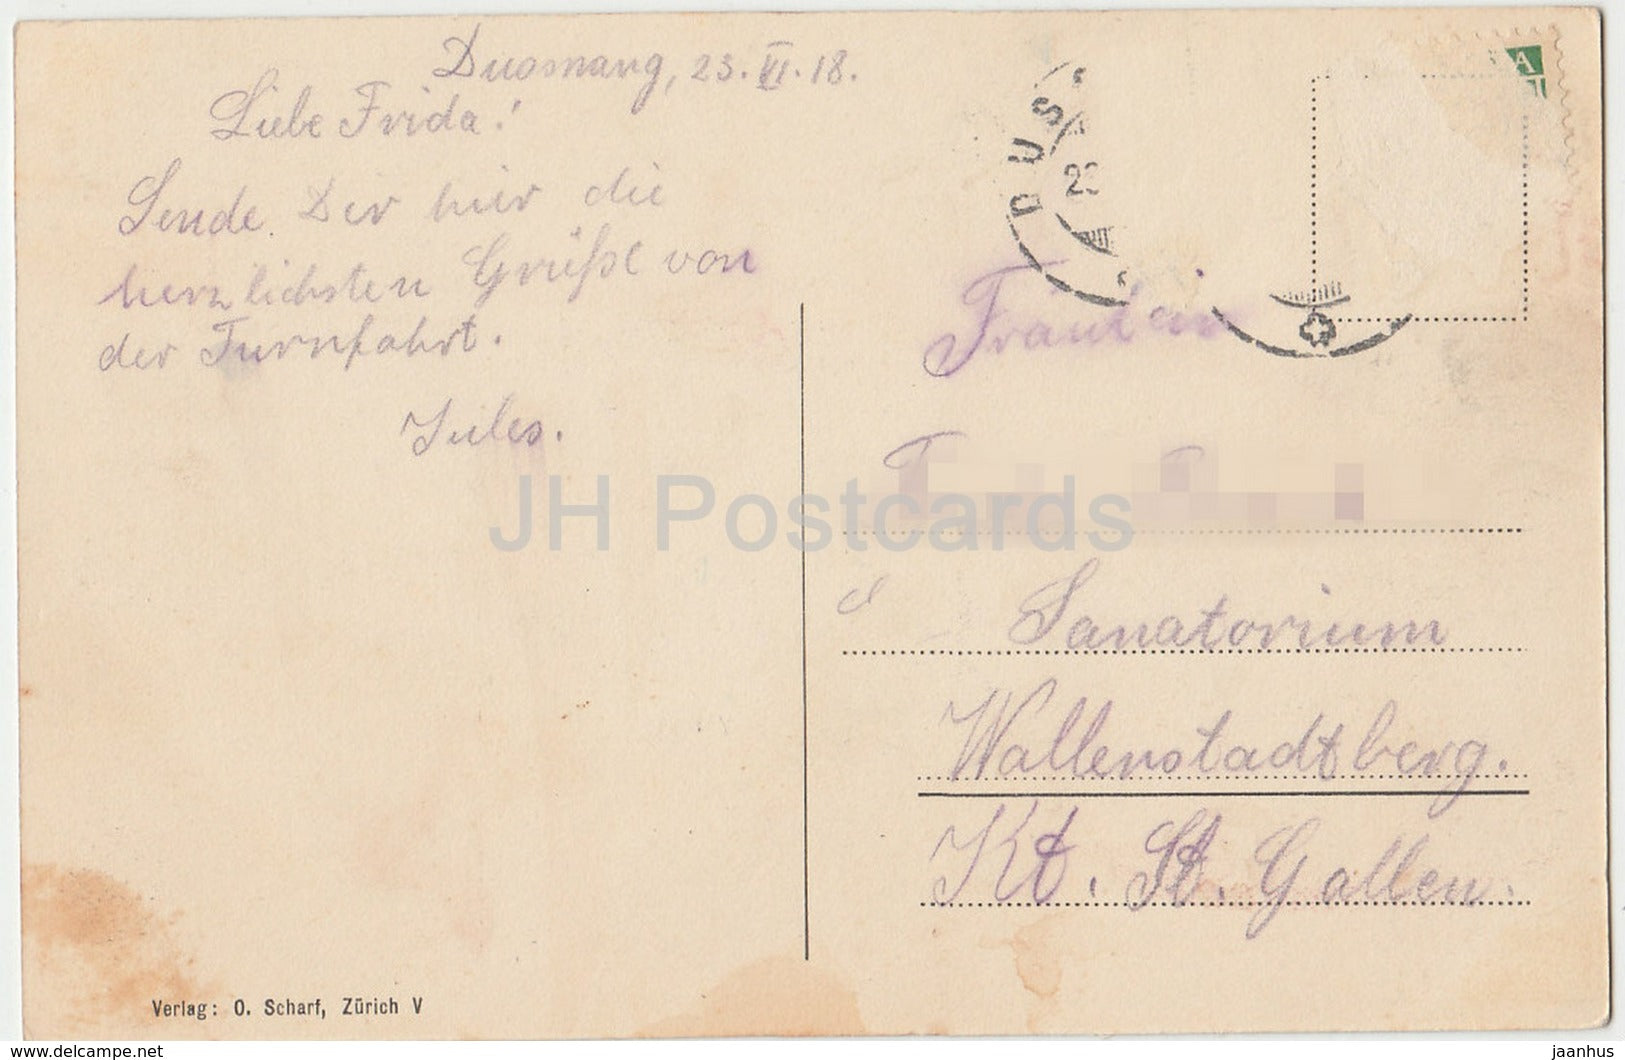 Dussnang, 23. VI. 18.
Liebe Frida!
Sende Dir hier die
herzlichsten Grüße von
der Turnfahrt.
Jules.
DUS
23
VIII
Fräulein
Sanatorium
Wallenstadtberg.
Kt. St. Gallen.
JH Postcards
Verlag: O. Scharf, Zürich V
delcampe.net
jaanhus